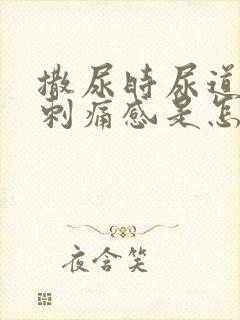 撒尿时尿道
刺痛感是怎
夜含笑